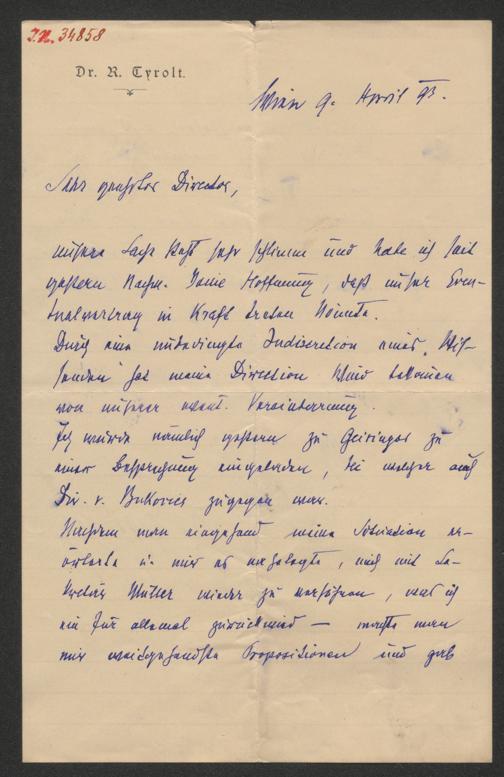 I.N. 34858
Dr. R. Tyrolt.
Wien 9. April 93.
Sehr geehrter Director,
unsere Sache steht sehr schlimm und habe ich seit
gestern Nachm. keine Hoffnung, daß unser Even-
tualvertrag in Kraft treten könnte.
Durch eine unbedingte Indiscretion eines „Wis-
senden“ hat meine Direction Wind bekommen
von unserer event. Vereinbarung.
Ich wurde nämlich gestern zu Geiringer zu
einer Besprechung eingeladen, bei welcher auch
Dir. v. Bukovics zugegen war.
Nachdem man eingehend meine Situation er-
örterte u. mir es nahelegte, mich mit Se-
kretär Müller wieder zu versöhnen, was ich
ein für allemal zurückwies — machte man
mir weitgehendste Propositionen und gab